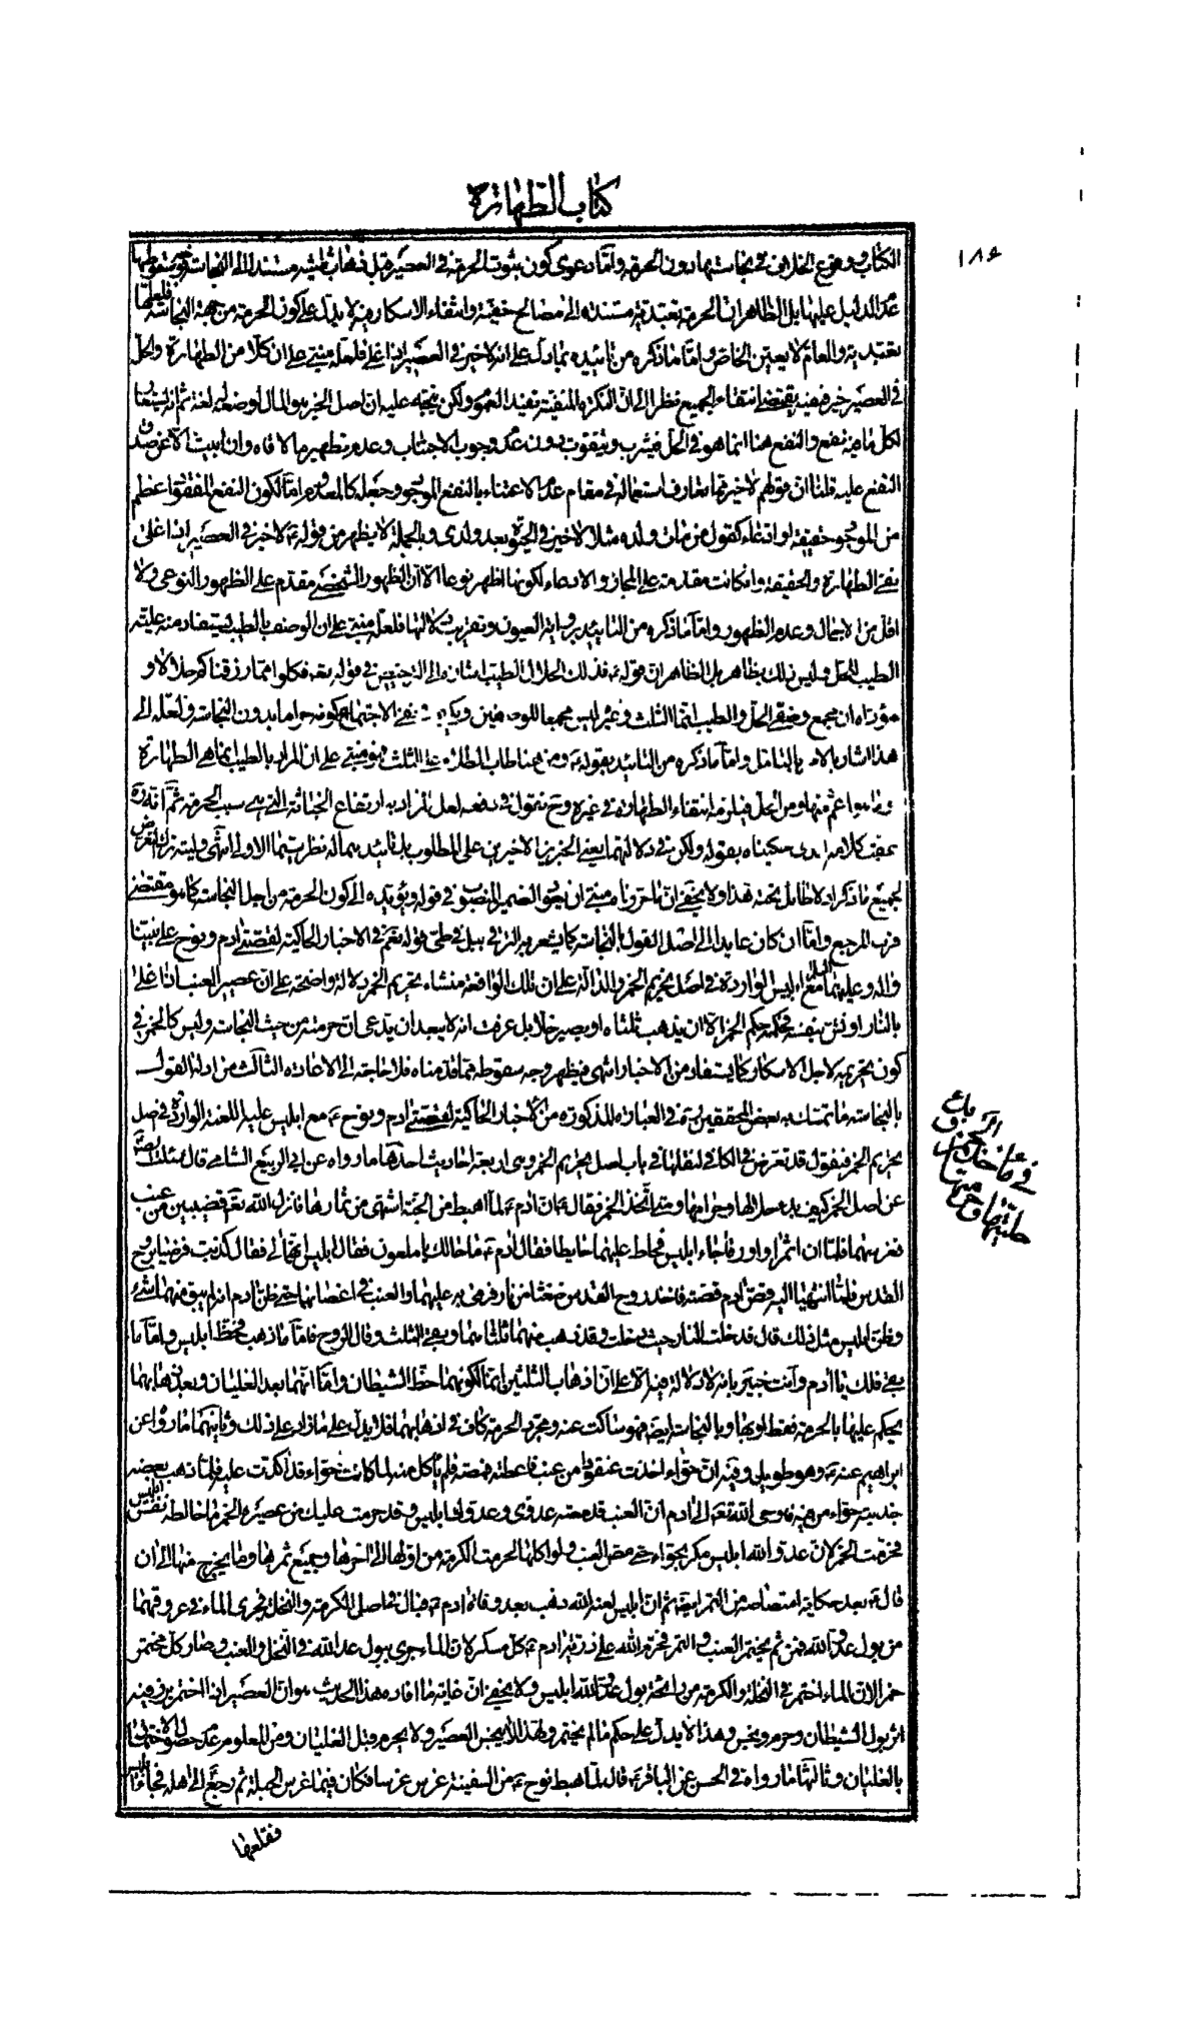 كتاب الطهارة
١٨٤
الكتاب ووقوع الخلاف في نجاستها دون الحرمة وامّا دعوى كون ثبوت الحرمة في العصير قبل ذهاب ثلثيه مستندا الى النجاسة فوجه سقوطها
عدم الدليل عليها بل الظاهر ان الحرمة تعبّدية مستندة الى مصالح خفيّة وانتفاء الاسكار فيه لا يدل على كون الحرمة من جهة النجاسة فلعلّها
تعبّدية والعام لا يعين الخاص وامّا ما ذكره من تاييده بما دل على انه لا خير في العصير اذا غلى فلعلّه مبنى على ان كلّا من الطهارة والحلّ
في العصير خير فنفيه يقتضى انتفاء الجميع نظرا الى ان النكرة المنفيّة تفيد العموم ولكن يتجه عليه ان اصل الخير هو المال وضع له لغة ثم انه استعمل
لكل ما فيه نفع والنفع هنا انما هو في الحل فيشرب ويتقوت به دون عدم وجوب الاجتناب وعدم تطهير ما لاقاه وان ابيت الّا عن صدق
النفع عليه قلنا ان قولهم لا خير فيما تعارف استعماله في مقام عدم الاعتناء بالنفع الموجود وجعله كالمعدوم امّا لكون النفع المفقود اعظم
من الموجود حقيقة او ادعاء كقول من مات ولده مثلا لا خير في الحيوة بعد ولدى وبالجملة لا يظهر من قوله ع لا خير في العصير اذا غلى
نفى الطهارة والحقيقة وان كانت مقدمة على المجاز والادعاء لكونها اظهر نوعا الّا ان الظهور الشخصى مقدّم على الظهور النوعى ولا
اقل من الاجمال وعدم الظهور وامّا ما ذكره من التاييد برواية العيون وتقريب دلالتها فلعلّه مبنى على ان الوصف بالطيب يستفاد منه علية
الطيب للحل وليس ذلك بظاهر بل الظاهر ان قوله ع فذلك الحلال الطيب اشارة الى الترخيص في قوله تعه فكلوا مما رزقناكم حلالا و
مؤداه ان مجمع وصفى الحل والطيب انّما الثلث وغيره ليس مجمعا للوصفين ويكفى في نفى الاجتماع كونه حراما بدون النجاسة ولعلّه الى
هذا اشار بالامر بالتامل وامّا ما ذكره من التاييد بقوله ع ومن هنا طاب الطلاء على الثلث فهو مبنى على ان المراد بالطيب انما هى الطهارة
عقب كلامه الذى حكيناه بقوله ولكن في دلالتهما يعنى الخبرين الاخيرين على المطلوب بل تاييدهما له نظر سيما الاولى انتهى وليته ترك التعرض
لجميع ما ذكر اذ لا طائل تحته هذا ولا يخفى ان ما حررناه مبنى ان يعود الضمير المنصوب في قوله ويؤيده الى كون الحرمة من اجل النجاسة كما هو مقتضى
قرب المرجع وامّا ان كان عايدا الى اصل القول بالنجاسة كما يشعر به
واله وعليهما السلام مع ابليس الواردة في اصل تحريم الخمر والدالة على ان تلك الواقعة منشاء تحريم الخمر دلالة واضحة على ان عصير العنب اذا غلى
بالنار او نشّ بنفسه فحكمه حكم الخمر الّا ان يذهب ثلثاه او يصير خلا بل عرفت انه لا يبعد ان يدعى ان حرمته من حيث النجاسة وليس كالخمر في
كون تحريمه لاجل الاسكار كما يستفاد من الاخبار انتهى فيظهر وجه سقوطه مما قدمناه فلا حاجة الى الاعادة الثالث من ادلة القول
بالنجاسة ما تمسك به بعض المحققين ره في العبارة المذكورة من الاخبار الحاكية لقصتى ادم ونوح ع مع ابليس عليه اللعنة الواردة في اصل
تحريم الخمر فنقول قد تعرض في الكافى لنقلها في باب اصل تحريم الخمر وهى اربعة احاديث احدها ما رواه عن ابى الربيع الشامى قال سئلت ابا عبد الله ع
عن اصل الخمر كيف بدء حلالها وحرامها ومتى اتخذ الخمر فقال ع ان ادم ع لما اهبط من الجنة اشتهى من ثمارها فانزل الله تعه قضيبين من عنب
فغرسهما فلما ان اثمرا واورقا جاء ابليس فحاط عليهما حايطا فقال ادم ع ما حالك يا ملعون فقال ابليس انهما لى فقال كذبت فرضيا بروح
القدس فلما انتهيا اليه قص ادم قصته فاخذ روح القدس ضغثا من نار فرمى به عليهما والعنب في اغصانهما حتى ظن ادم انه لم يبق منهما شىء
وظن ابليس مثل ذلك قال قد دخلت النار حيث دخلت وقد ذهب منهما ثلثاهما وبقى الثلث وقال الروح فامّا ما ذهب فحظ ابليس وامّا ما
بقى فلك يا ادم وانت خبير بانه لا دلالة فيه الّا على ان ذهاب الثلثين انما لكونهما حظ الشيطان وامّا انهما بعد الغليان وبعد ذهابهما
يحكم عليها بالحرمة فقط او بها وبالنجاسة ايضا فهو ساكت عنه ومجرد الحرمة كاف في اذهابهما فلا يدل على ما زاد على ذلك وثانيهما ما رواه عن
ابراهيم عنه ع وهو طويل وفيه ان حواء اخذت عنقودا من عنب فاعطته فمصّه فلم ياكل منه لما كانت حواء قد اكدت عليه فلما ذهب بعضه
جذبته حواء من فيه فاوحى الله تعه الى ادم ان العنب قد مصّه عدوى وعدوك ابليس وقد حرمت عليك من عصيره الخمر ما خالطه نفس ابليس
فحرمت الخمر لان عدو الله ابليس مكر بحواء حتى مص العنب ولو اكلها لحرمت الكرمة من اولها الى اخرها وجميع ثمرها وما يخرج منها الى ان
قال ع بعد حكاية امتصاصه من التمر ايضا ثم ان ابليس لعنه الله ذهب بعد وفاة ادم ع فبال في اصل الكرمة والنخلة فجرى الماء في عروقهما
من بول عدو الله فمن ثم يختمر العنب والتمر فحرم الله على ذرية ادم ع كل مسكر لان الماء جرى ببول عدو الله في النخل والعنب وصار كل مختمر
خمرا لان الماء اختمر في النخلة والكرمة من رائحة بول عدو الله ابليس ولا يخفى ان غاية ما افاده هذا الحديث هو ان العصير اذا اختمر برز فيه
اثر بول الشيطان وحرم ونجس وهذا لا يدل على حكم ما لم يختمر ولهذا لا ينجس العصير ولا يحرم قبل الغليان ومن المعلوم عدم حصول الاختمار
بالغليان وثالثها ما رواه في الحسن عن الباقر ع قال لما هبط نوح ع من السفينة غرس غرسا فكان فيما غرس الحبلة ثم رجع الى اهله فجاء ابليس
فقلعها